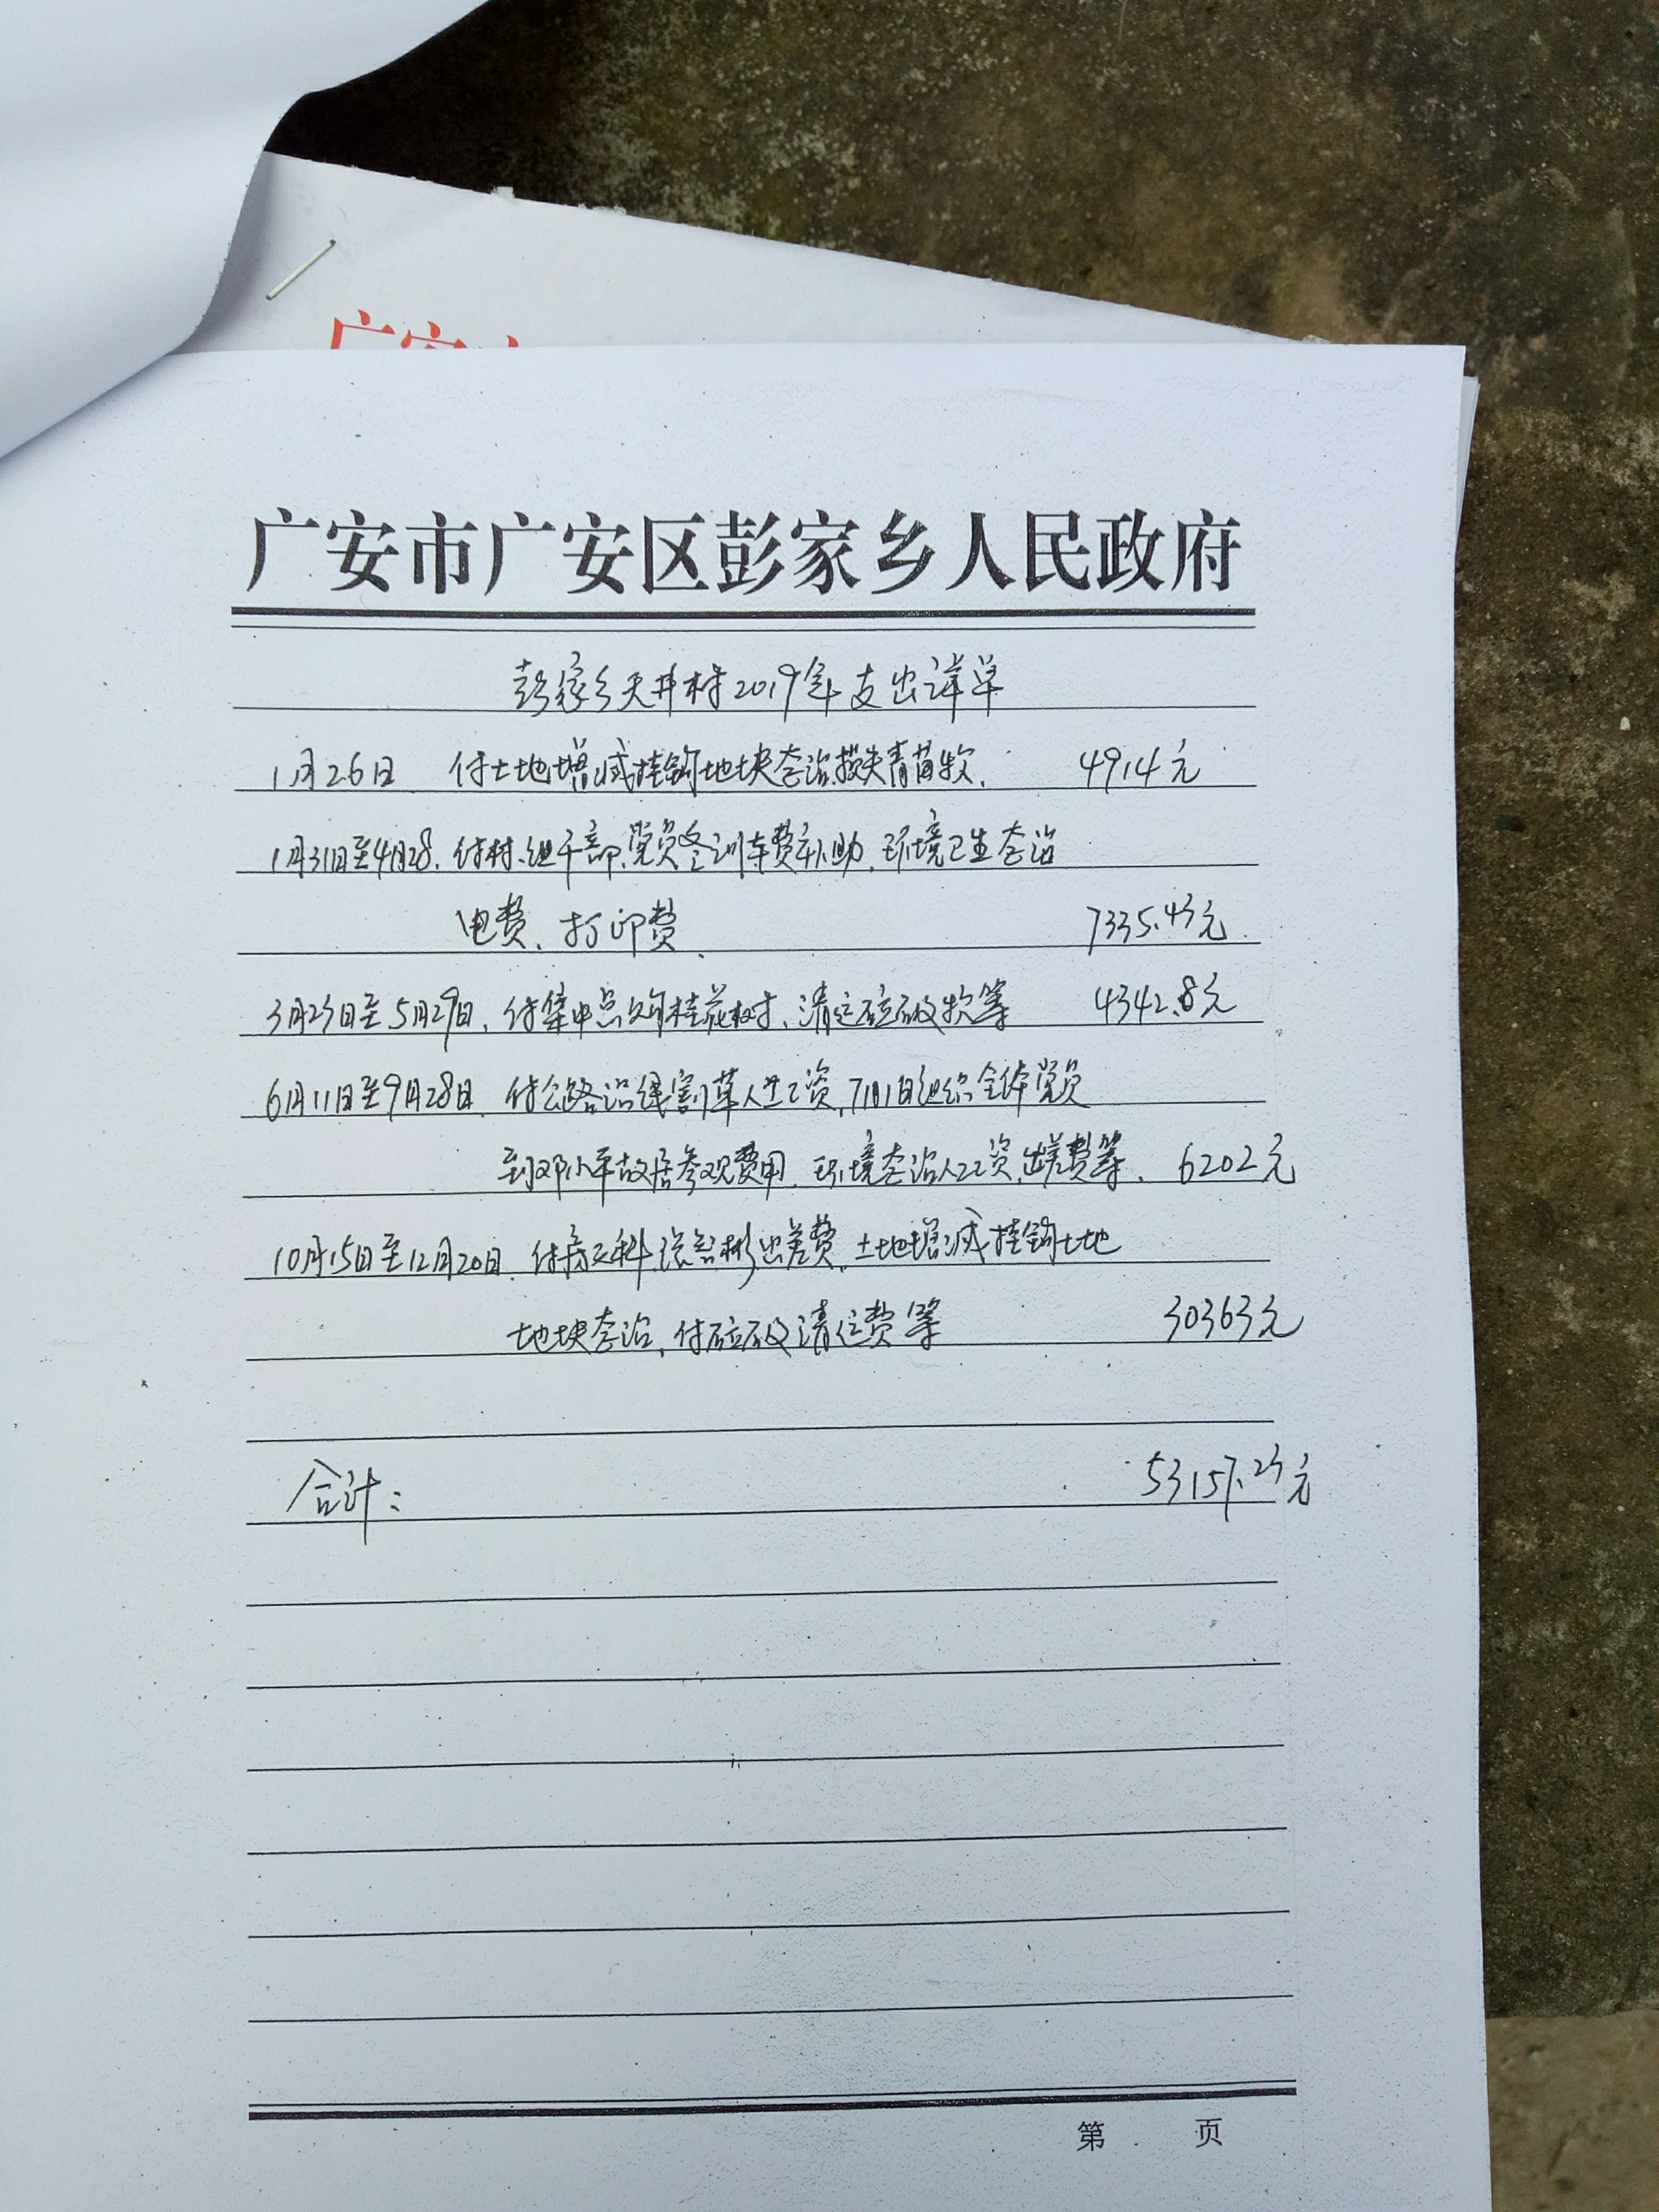 广安
广安市广安区彭家乡人民政府
彭家乡天井村2019年支出详单
1月26日 付土地增减挂钩地块杏治损失青苗款. 4914元
1月31日至4月28. 付村.组干部.党员冬训车费补助.环境卫生杏治
电费、打印费. 7335.43元.
3月23日至5月29日. 付集中点购桂花树、清运垃圾款等 4342.8元
6月11日至9月28日. 付公路沿线割草人工工资,7月1日组织全体党员
到邓小平故居参观费用.环境杏治人工工资.出差费等. 6202元
10月15日至12月20日. 付 出差费.土地增减挂钩土地
地块杏治,付垃圾清运费等 30363元
合计: 53157.23元
第 页